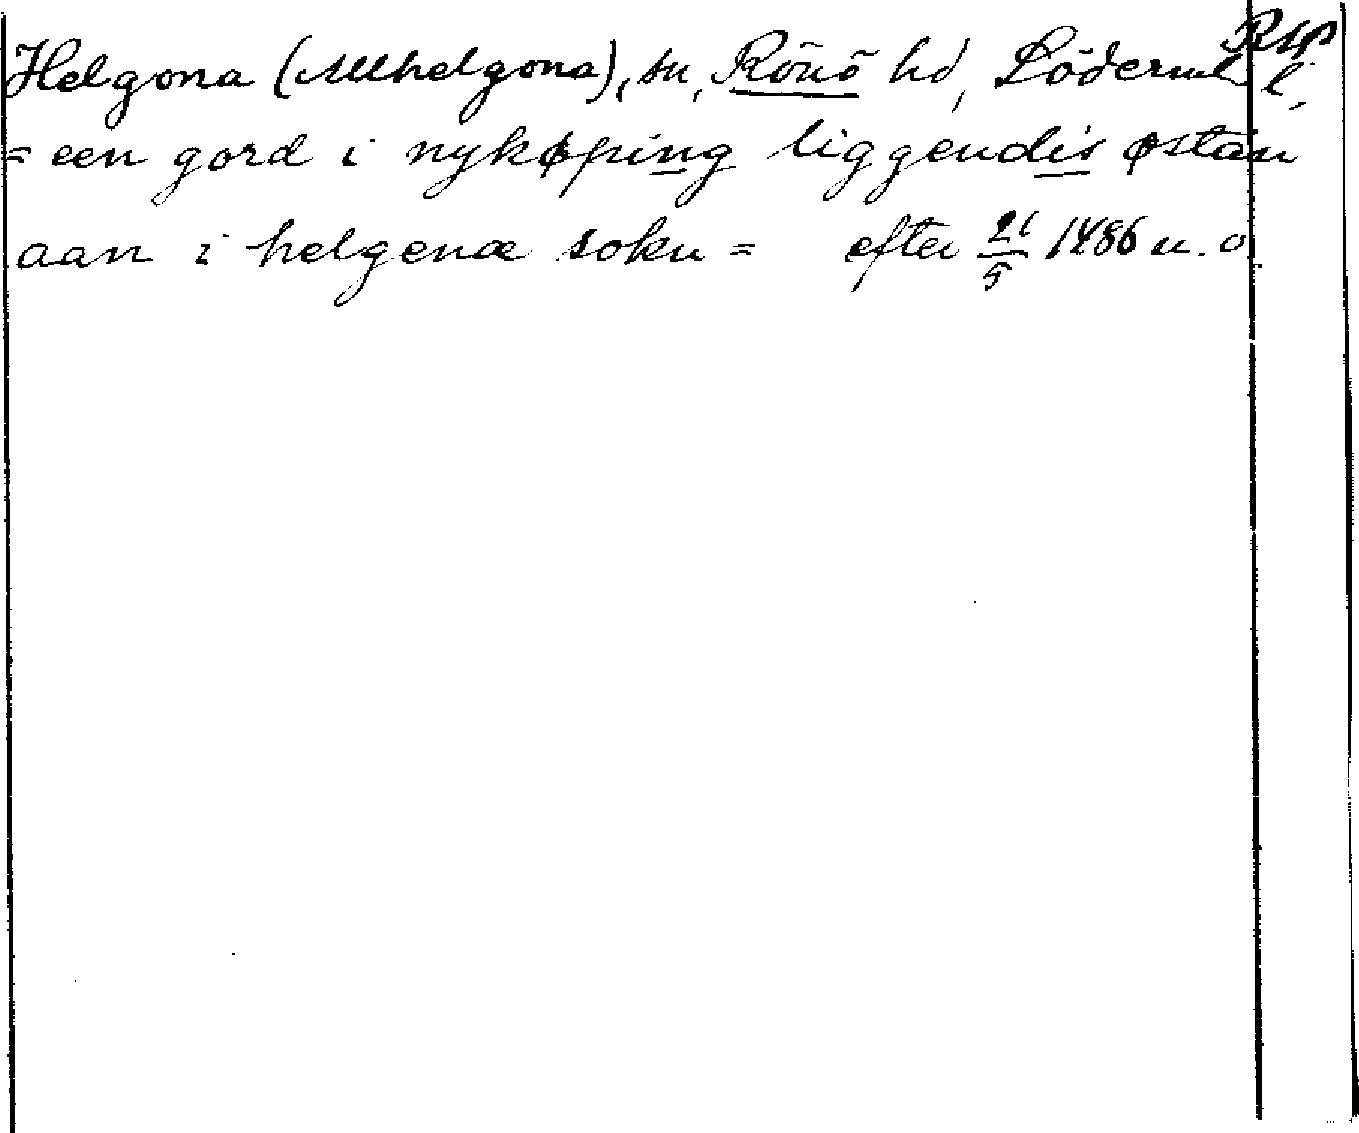 Helgona (Allhelgona), sn, Rönö hd, Söderml l,
Rsp
= een gord i nykøping liggendis østan
aan i helgenæ sokn = efter 21/5 1486 u. å.